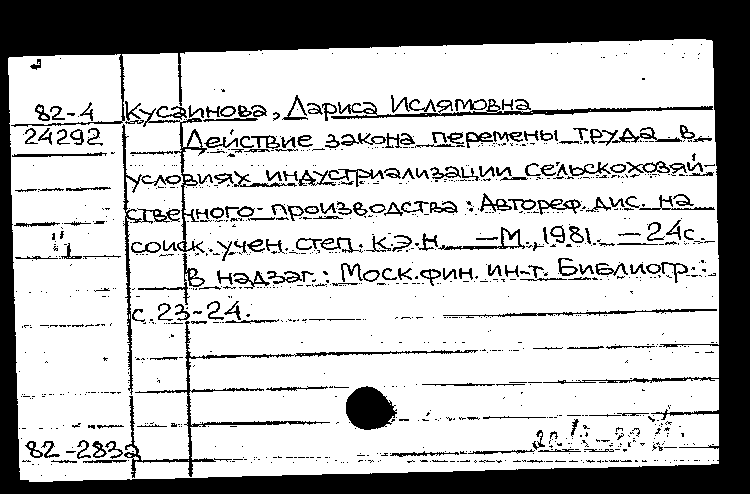 82-4 Кусаинова, Лариса Ислямовна
24292 Действие закона перемены труда в
условиях индустриализации сельскохозяй-
ственного производства: Автореф. дис. на
соиск. учен. степ. к.э.н. —М., 1981. —24с.
В надзаг.: Моск. фин. ин-т. Библиогр.:
с. 23-24.
82-2832